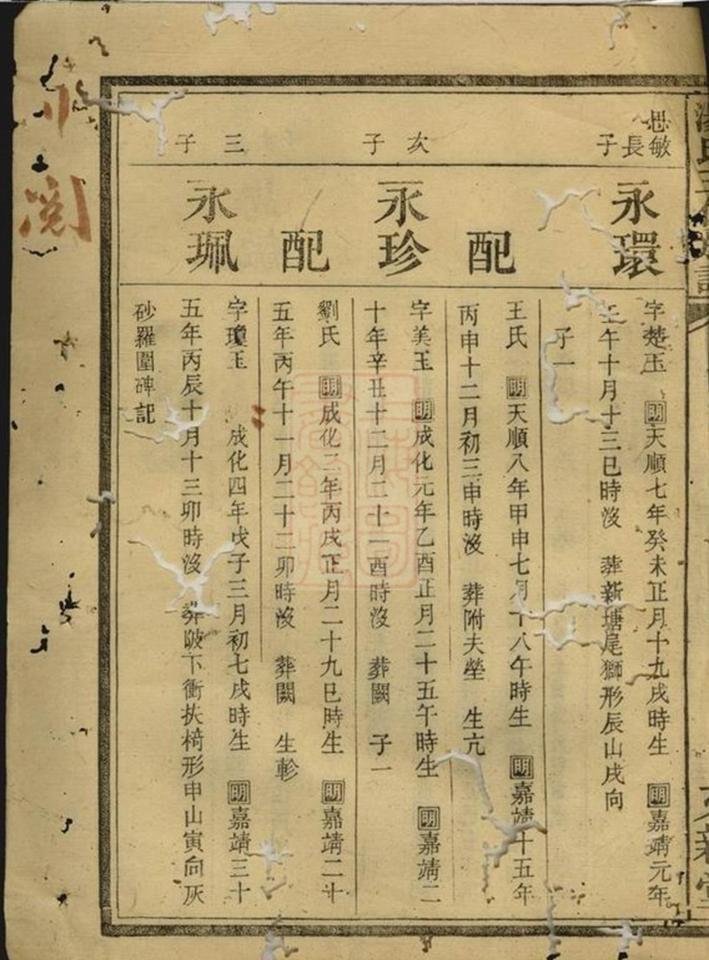 思敏
長子
永環
字楚玉 明天順七年癸未正月十九戌時生 明嘉靖元年
壬午十月十三巳時沒 葬新塘尾獅形辰山戌向
子一
配
王氏 明天順八年甲申七月十八午時生 明嘉靖十五年
丙申十二月初三申時沒 葬附夫塋 生亢
次子
永珍
字美玉 明成化元年乙酉正月二十五午時生 明嘉靖二
十年辛丑十二月二十一酉時沒 葬闕 子一
配
劉氏 明成化二年丙戌正月二十九巳時生 明嘉靖二十
五年丙午十一月二十二卯時沒 葬闕 生軫
三子
永珮
字瓊玉 成化四年戊子三月初七戌時生 明嘉靖三十
五年丙辰十月十三卯時沒 葬陂下衝扶椅形申山寅向灰
砂羅圍碑記